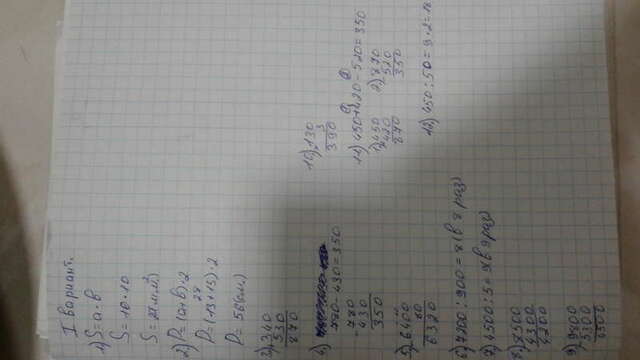 I вариант.
1) S=a·b
S=10·10
2) P=(a+b)·2
28
P=(13+15)·2
P=56(см.)
3) 340
530
870
4)
780-430=350
-780
430
350
5) 6400
80
6320
6) 7200:900=8(в 8 раз)
7) 4500:5=9(в 9 раз)
8) 8500
4300
4200
9) 9800
5300
4500
10) 130
3
390
11) 450+420-520=350
1) 450
420
870
2) 870
520
350
12) 450:50=9·2=18